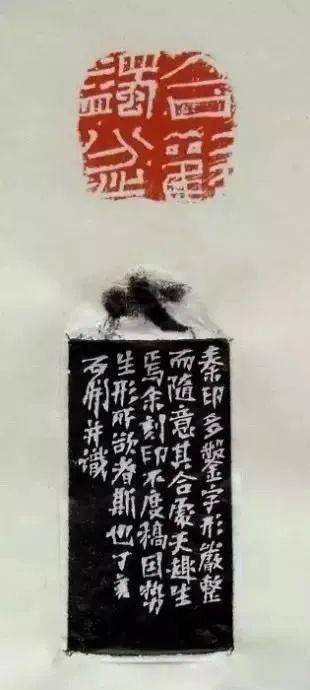 秦印多鑿字形嚴整
而隨意其合處天趣生
焉余刻印不度稿因勢
生形所欲者斯也丁亥
石開并識